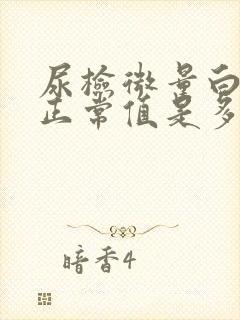 尿检微量白
正常值是多
暗香4